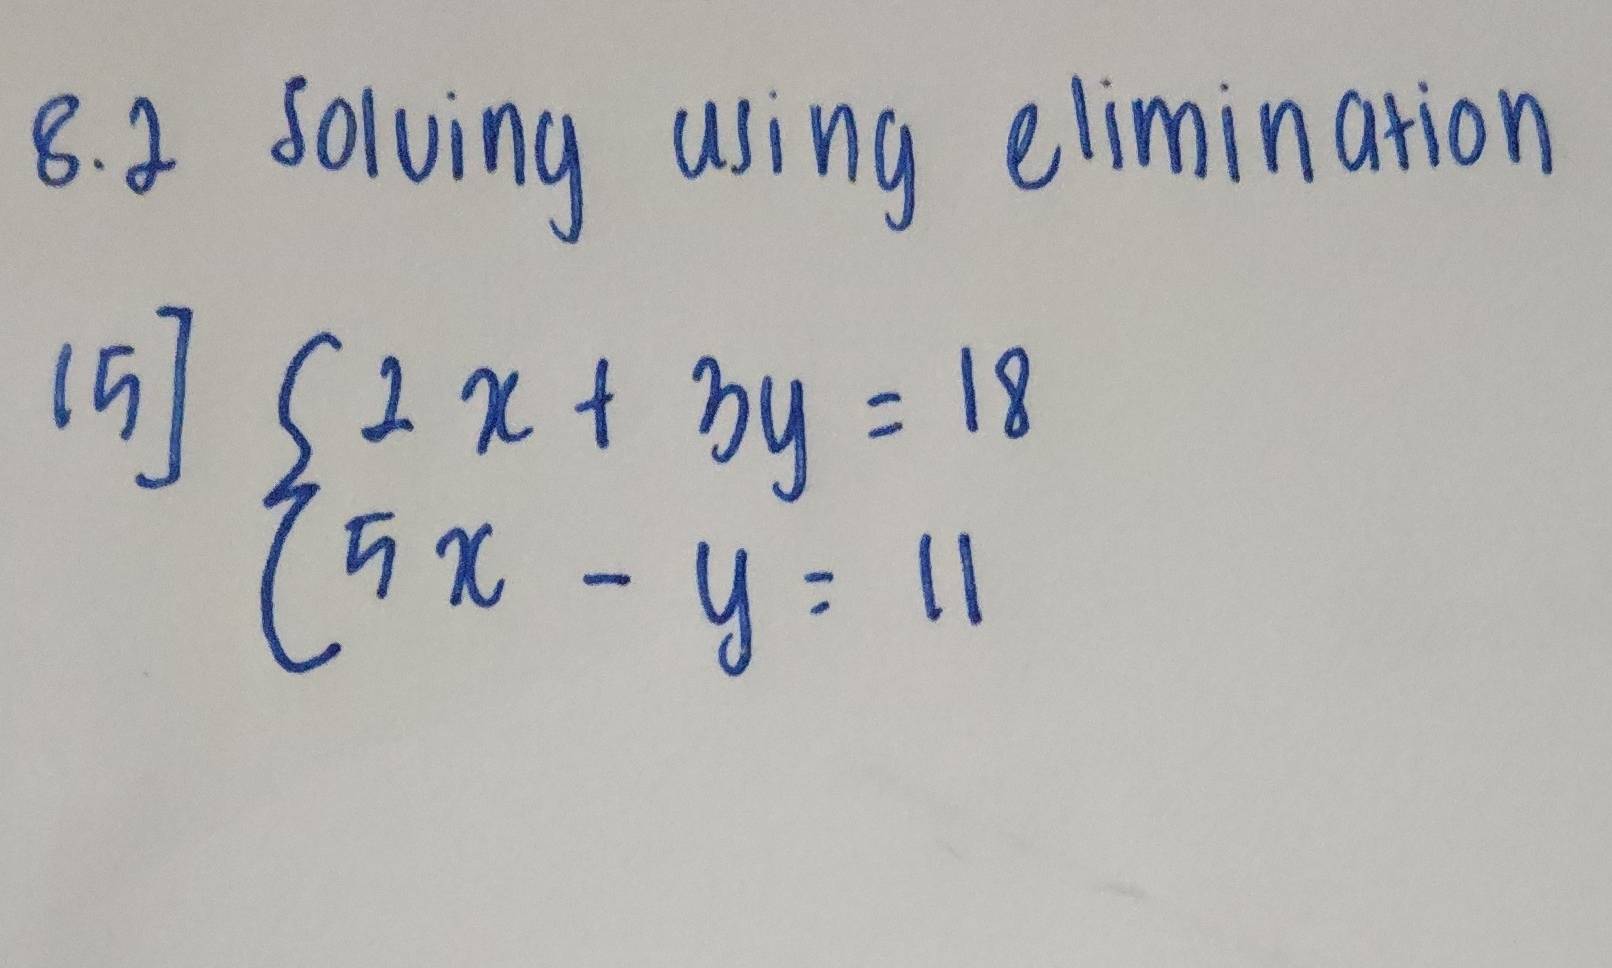 8.2 Solving using elimination
15] { 2x + 3y = 18
5x - y = 11